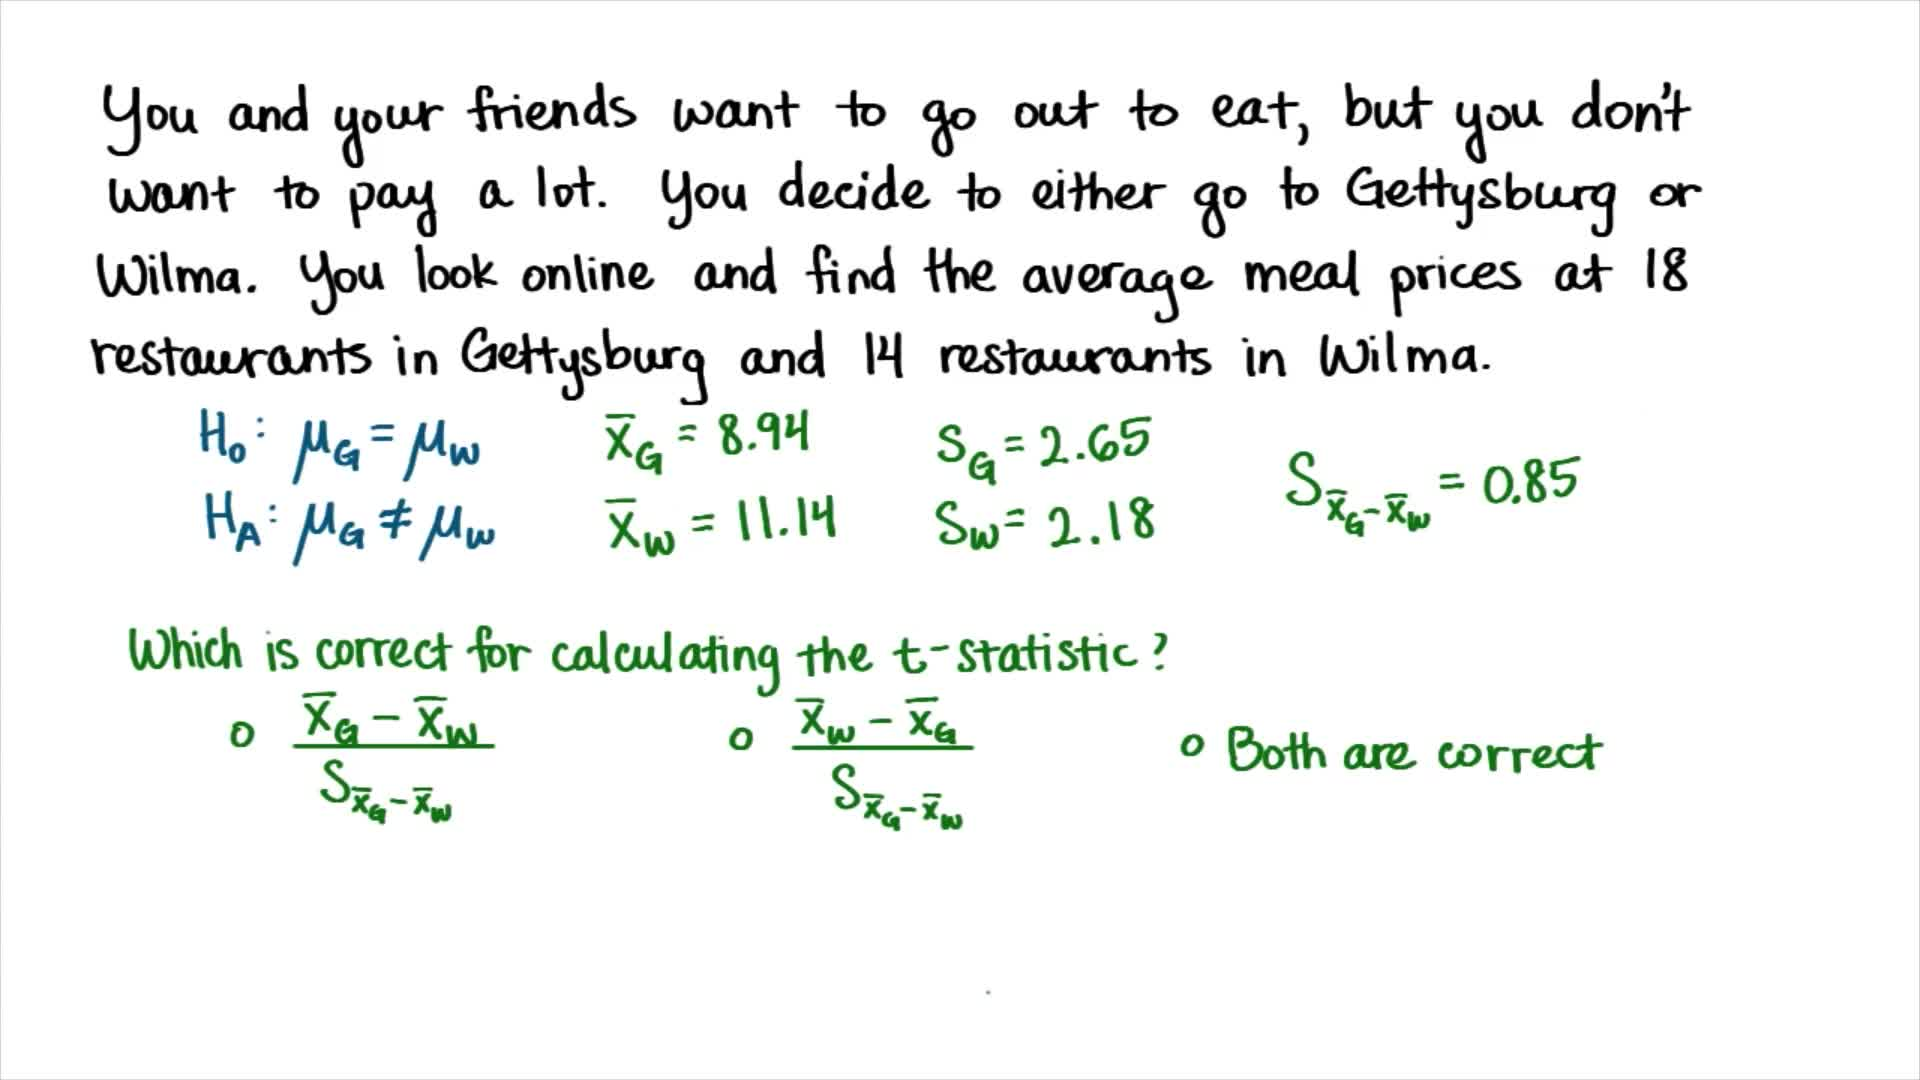 You and your friends want to go out to eat, but you don't
want to pay a lot. You decide to either go to Gettysburg or
Wilma. You look online and find the average meal prices at 18
restaurants in Gettysburg and 14 restaurants in Wilma.
H₀: μ_G = μ_W x̄_G = 8.94 S_G = 2.65 S_x̄_G-x̄_W = 0.85
H_A: μ_G ≠ μ_W x̄_W = 11.14 S_W = 2.18
Which is correct for calculating the t-statistic?
o (x̄_G - x̄_W) / S_x̄_G-x̄_W o (x̄_W - x̄_G) / S_x̄_G-x̄_W o Both are correct